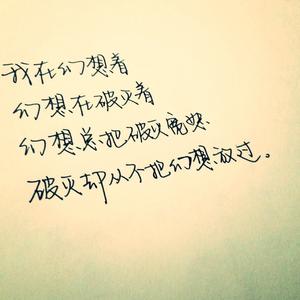 我在幻想着
幻想在破灭着
幻想总把破灭宽恕
破灭却从不把幻想放过。